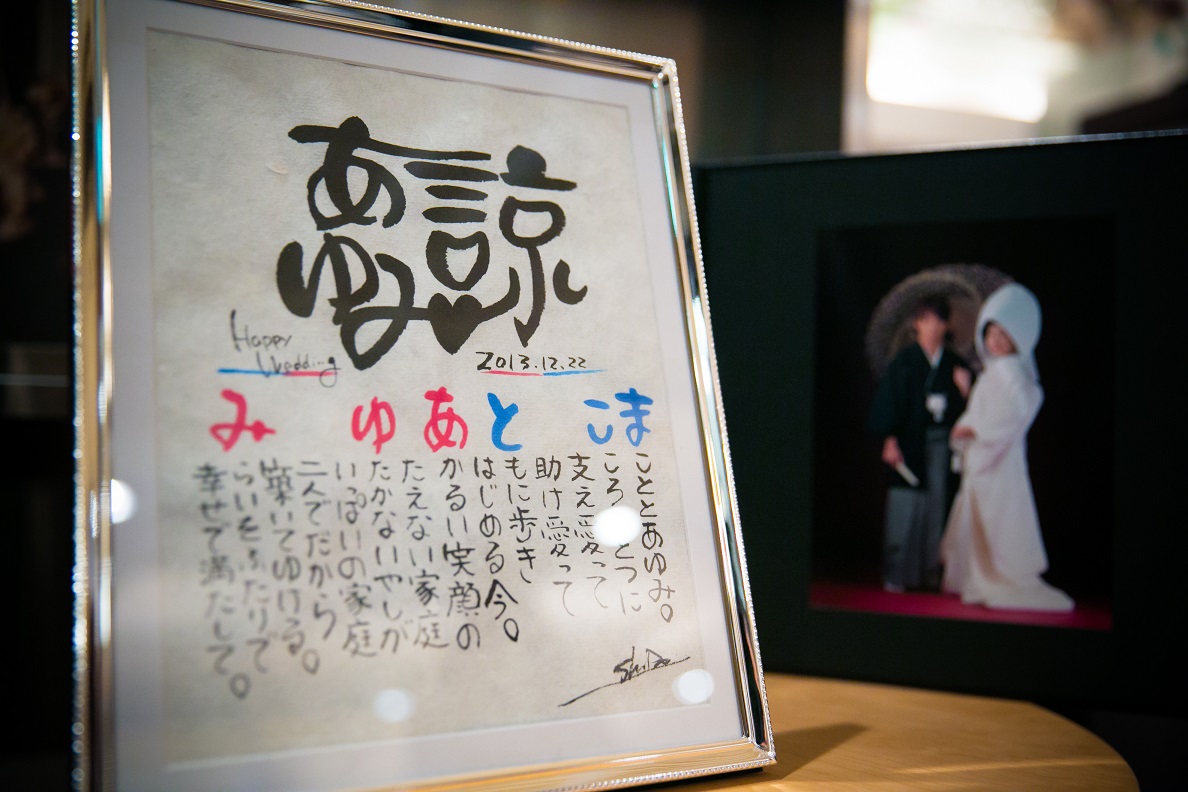 諒
あゆみ
Happy
Wedding
2013.12.22
まこととあゆみ。
こころ とつに
支え愛って
助け愛って
ともに歩き
はじめる今。
あかるい笑顔の
たえない家庭
ゆたかないやしが
いっぱいの家庭
二人でだから
築いてゆける。
みらいをふたりで
幸せで満たして。